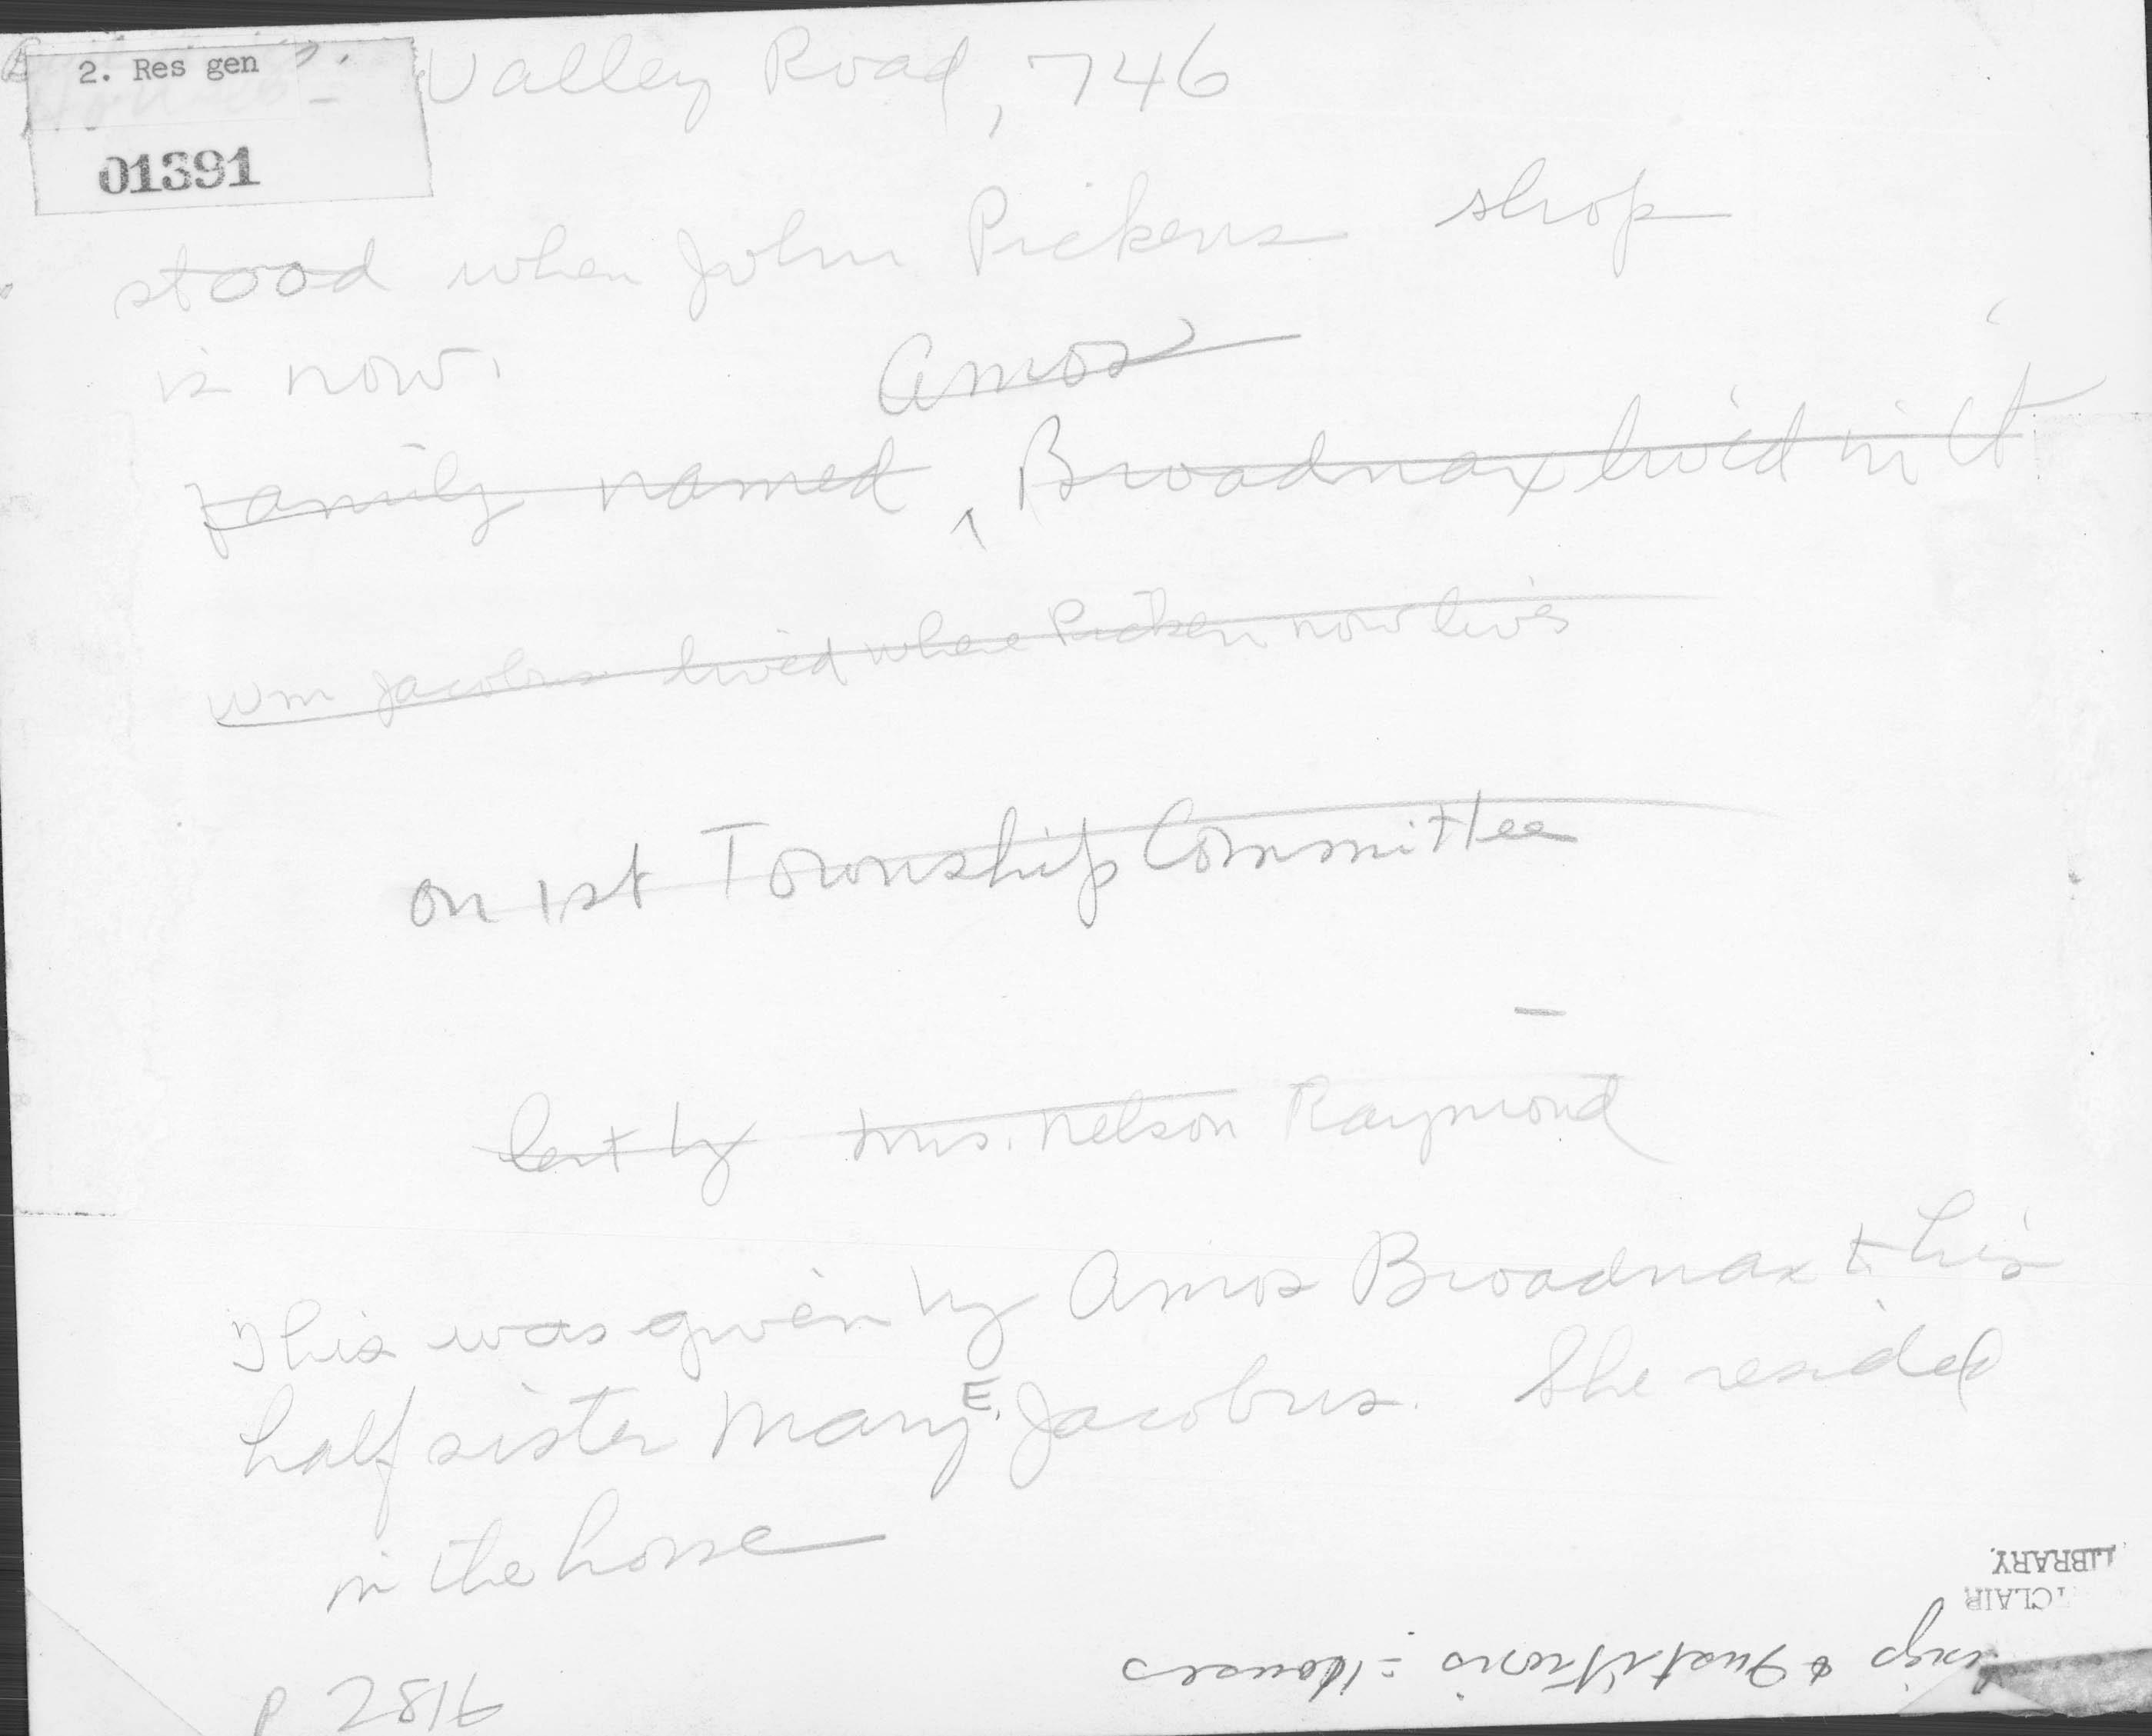 2. Res gen
01391
Valley Road, 746
stood when John Pickens shop
is now.
Amos
family named ^ Broadnax lived in it
Wm Jacobus lived where Picken now lives
on 1st Township Committee
lent by Mrs. Nelson Raymond
This was given by Amos Broadnax to his
half sister Mary E. Jacobus. She resided
in the house
P 2816
& Institutions - Houses
CLAIR
LIBRARY